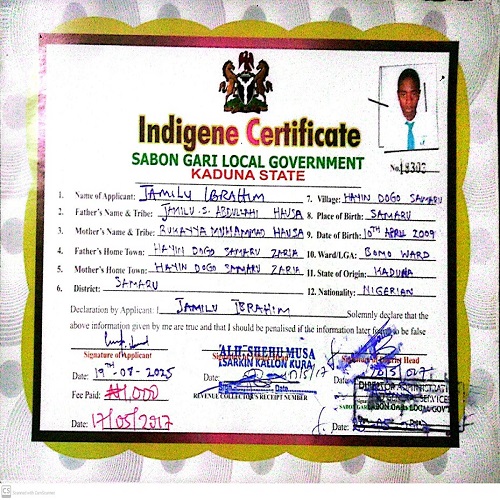 Indigene Certificate
SABON GARI LOCAL GOVERNMENT
KADUNA STATE
No. 18303
1. Name of Applicant: JAMILU IBRAHIM
2. Father's Name & Tribe: JAMILU .S. ABDULLAHI HAUSA
3. Mother's Name & Tribe: RUKAYYA MUHAMMAD HAUSA
4. Father's Home Town: HAYIN DOGO SAMARU ZARIA
5. Mother's Home Town: HAYIN DOGO SAMARU ZARIA
6. District: SAMARU
7. Village: HAYIN DOGO SAMARU
8. Place of Birth: SAMARU
9. Date of Birth: 10TH APRIL 2009
10. Ward/LGA: BOMO WARD
11. State of Origin: KADUNA
12. Nationality: NIGERIAN
Declaration by Applicant: I JAMILU IBRAHIM Solemnly declare that the
above information given by me are true and that I should be penalised if the information later found to be false
Signature of Applicant
Date: 19TH-08-2025
Fee Paid: ₦1,000
Date: 17/05/2017
ALH SHEHU MUSA
SARKIN KALLON KURA
Date
REVENUE COLLECTOR'S RECEIPT NUMBER
Signature of District Head
Date:
DIRECTOR ADMINISTRATION
GENERAL SERVICES
SABON GARI LOCAL GOVT
Date: